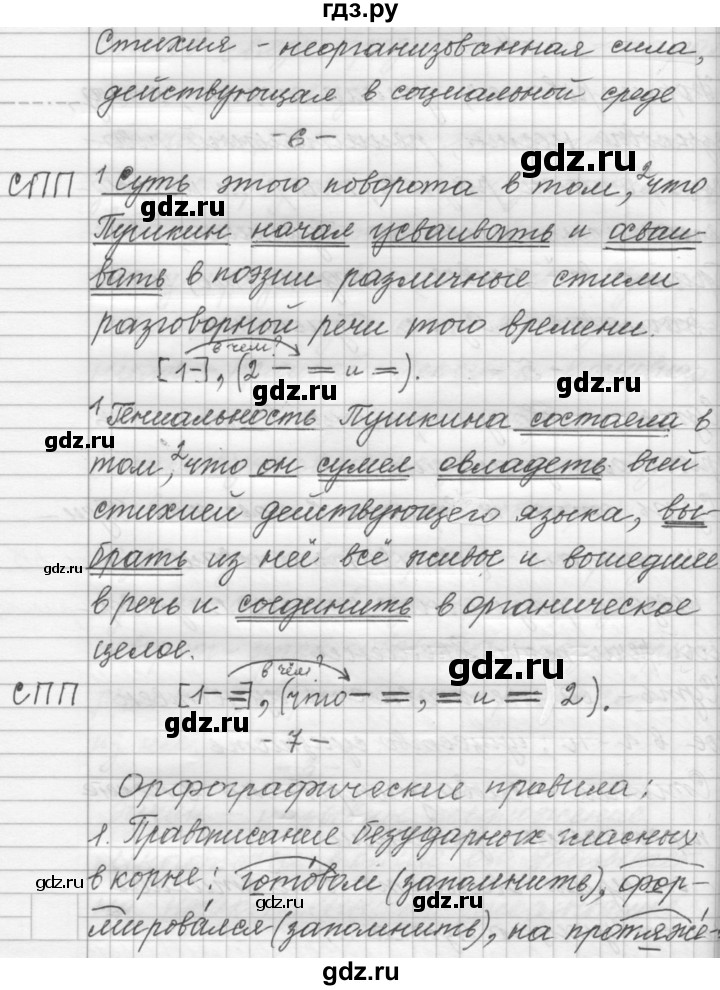 гдз.ру
Стихия - неорганизованная сила,
действующая в социальной среде
- 6 -
gdz.ru
СПП 1 Суть этого поворота в том, 2 что
gdz.ru
Пушкин начал усваивать и осваи-
gdz.ru
вать в поэзии различные стили
разговорной речи того времени.
в чём?
[1 -], (2 - = и =).
gdz.ru
1 Гениальность Пушкина состояла в
gdz.ru
gdz.ru
том, 2 что он сумел овладеть всей
стихией действующего языка, вы-
gdz.ru
gdz.ru
брать из неё всё живое и вошедшее
в речь и соединить в органическое
целое.
в чём?
gdz.ru
СПП [1 - =], (что - =, = и = 2).
gdz.ru
- 7 -
Орфографические правила:
1. Правописание безударных гласных
gdz.ru
gdz.ru
в корне: готовом (запомнить), фор-
gdz.ru
мировался (запомнить), на протяже-
gdz.ru
gdz.ru
gdz.ru